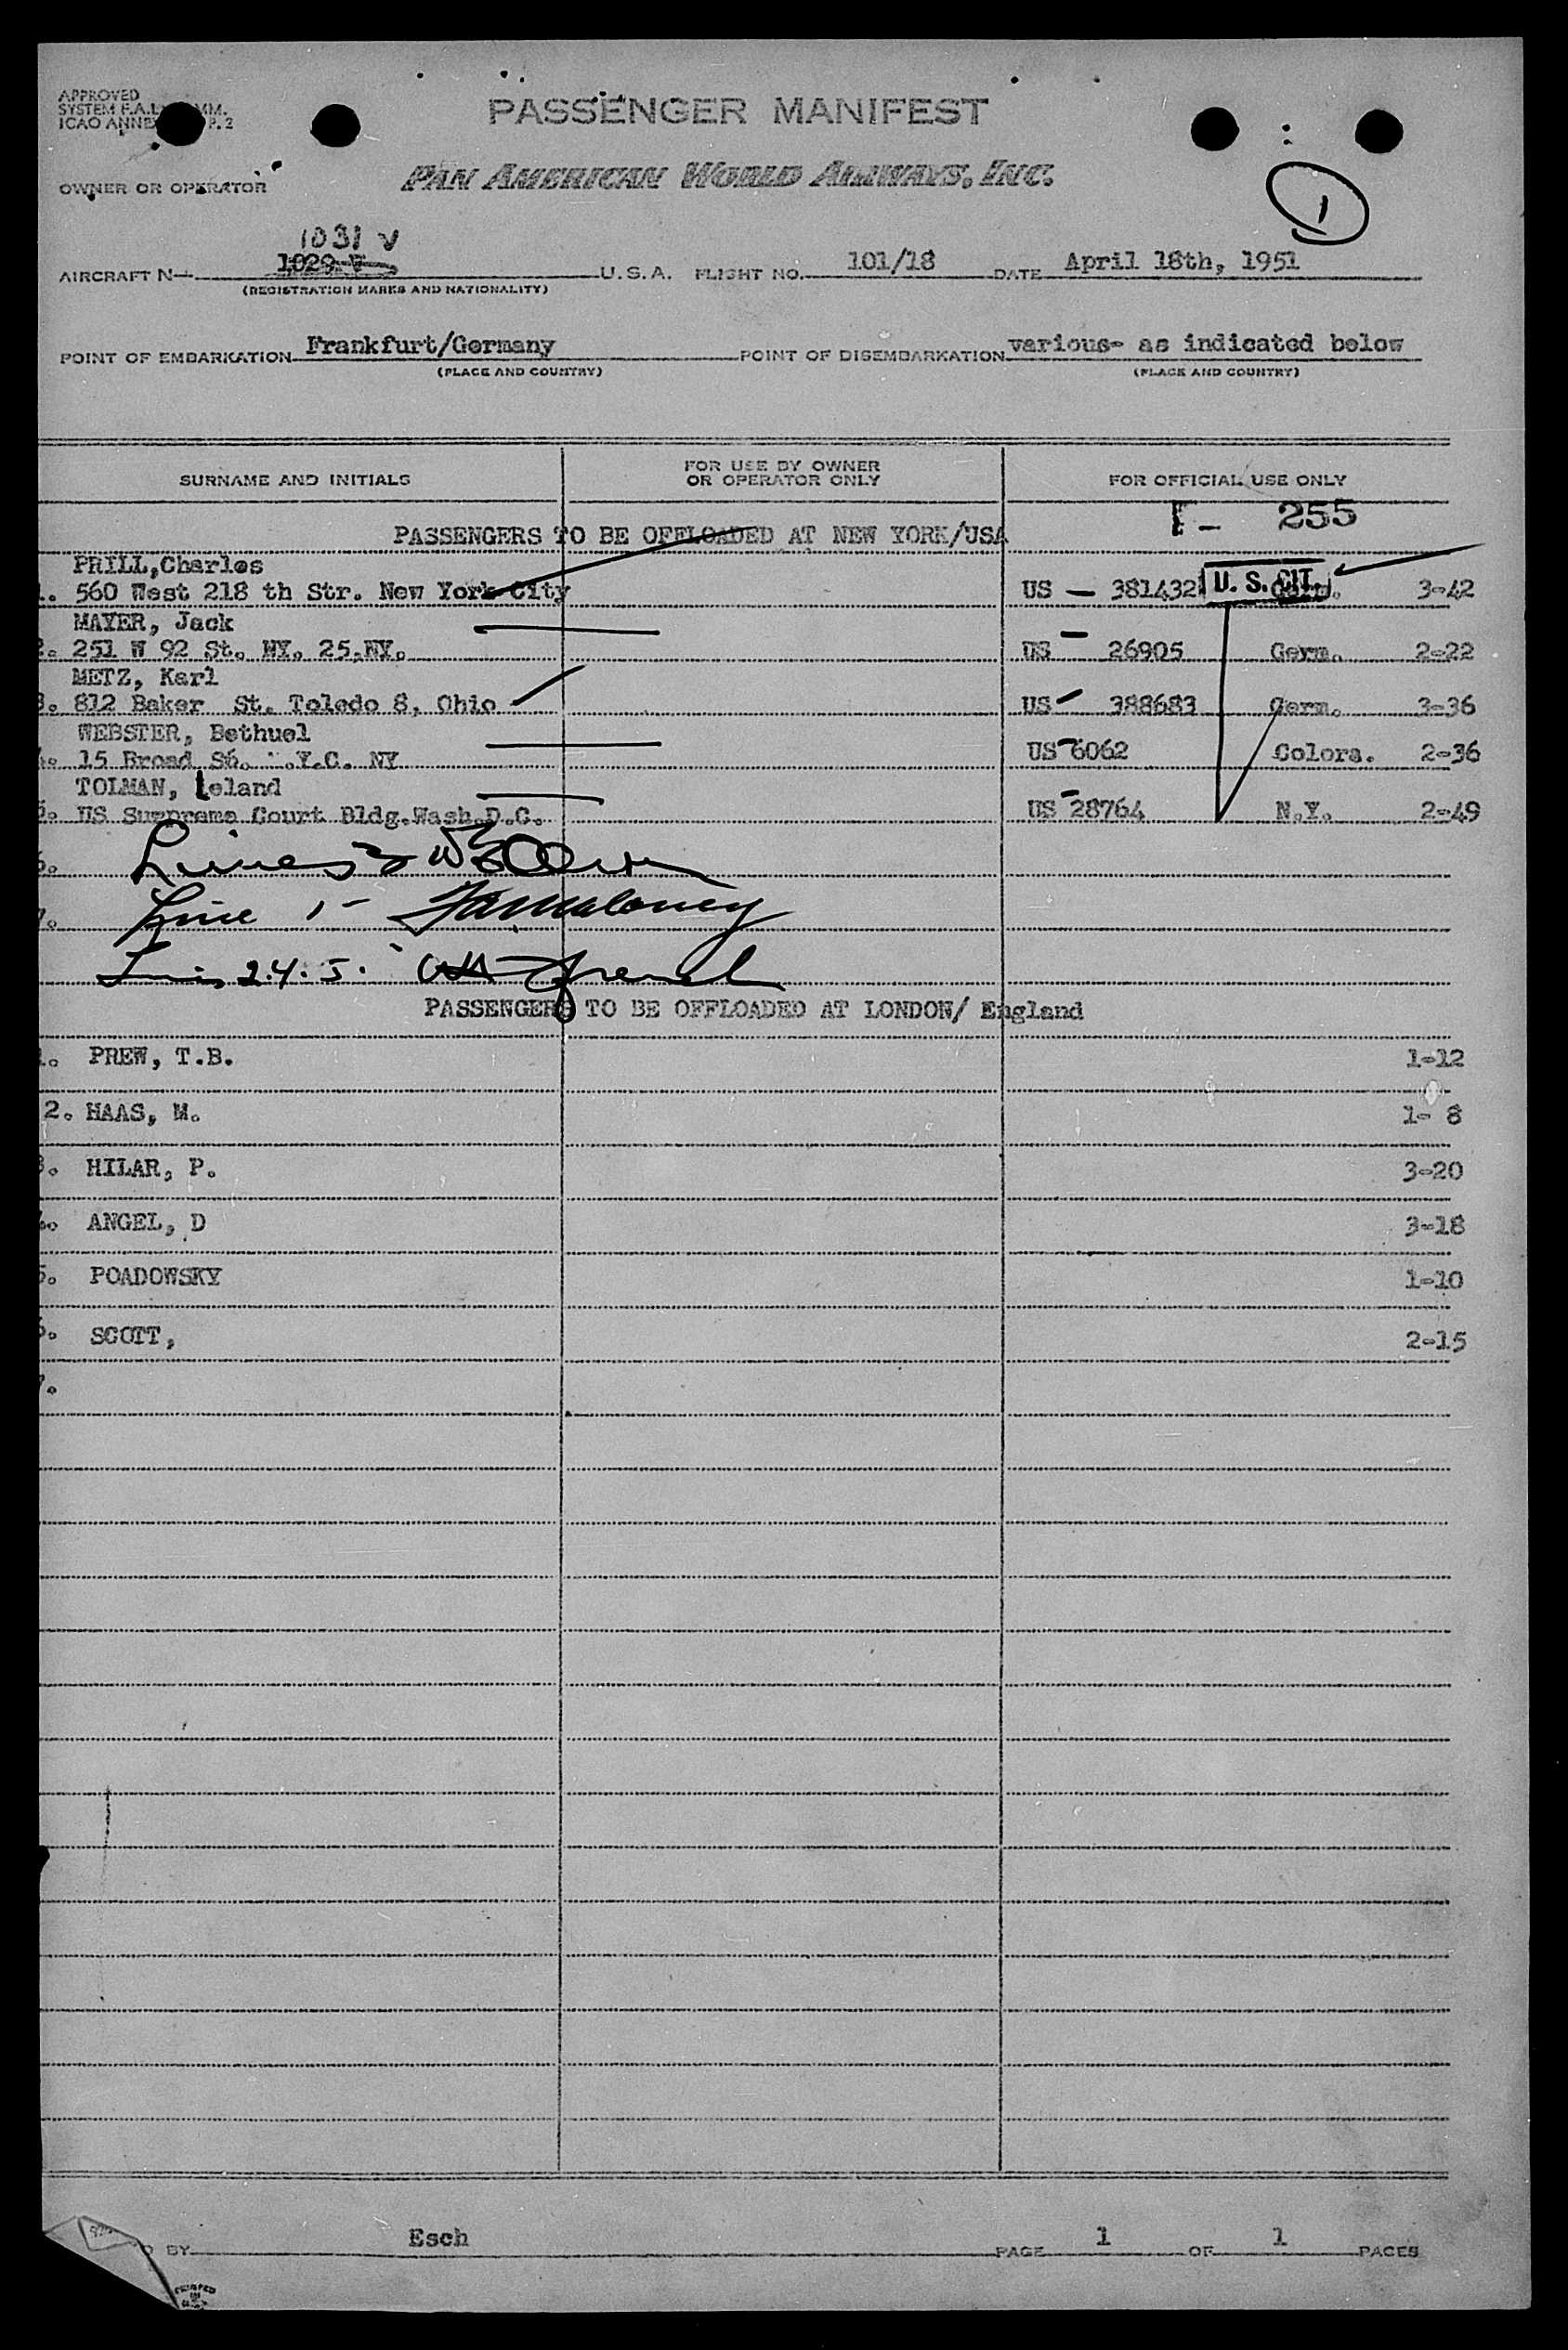 APPROVED
SYSTEM F.A.L. COMM.
ICAO ANNEX P. 2
PASSENGER MANIFEST
OWNER OR OPERATOR
PAN AMERICAN WORLD AIRWAYS, INC.
1
1031 V
AIRCRAFT N- 1029 V U.S.A. FLIGHT NO. 101/18 DATE April 18th, 1951
(REGISTRATION MARKS AND NATIONALITY)
POINT OF EMBARKATION Frankfurt/Germany POINT OF DISEMBARKATION various- as indicated below
(PLACE AND COUNTRY) (PLACE AND COUNTRY)
SURNAME AND INITIALS FOR USE BY OWNER OR OPERATOR ONLY FOR OFFICIAL USE ONLY
F- 255
PASSENGERS TO BE OFFLOADED AT NEW YORK/USA
PRILL,Charles
1. 560 West 218 th Str. New York City US - 381432 U. S. CIT. 3-42
MAYER, Jack
2. 251 W 92 St. NY. 25.NY. US - 26905 Germ. 2-22
METZ, Karl
3. 812 Baker St. Toledo 8, Ohio US - 388683 Germ. 3-36
WEBSTER, Bethuel
4. 15 Broad St. .Y.C. NY US-6062 Colora. 2-36
TOLMAN, Leland
5. US Supreme Court Bldg.Wash.D.C. US-28764 N.Y. 2-49
6. Lines 3
7. Line 1- Maloney
Lines 2.4.5. French
PASSENGERS TO BE OFFLOADED AT LONDON/ England
1. PREW, T.B. 1-12
2. HAAS, M. 1- 8
3. HILAR, P. 3-20
4. ANGEL, D 3-18
5. POADOWSKY 1-10
6. SCOTT, 2-15
7.
BY Esch PAGE 1 OF 1 PAGES
PRINTED
IN